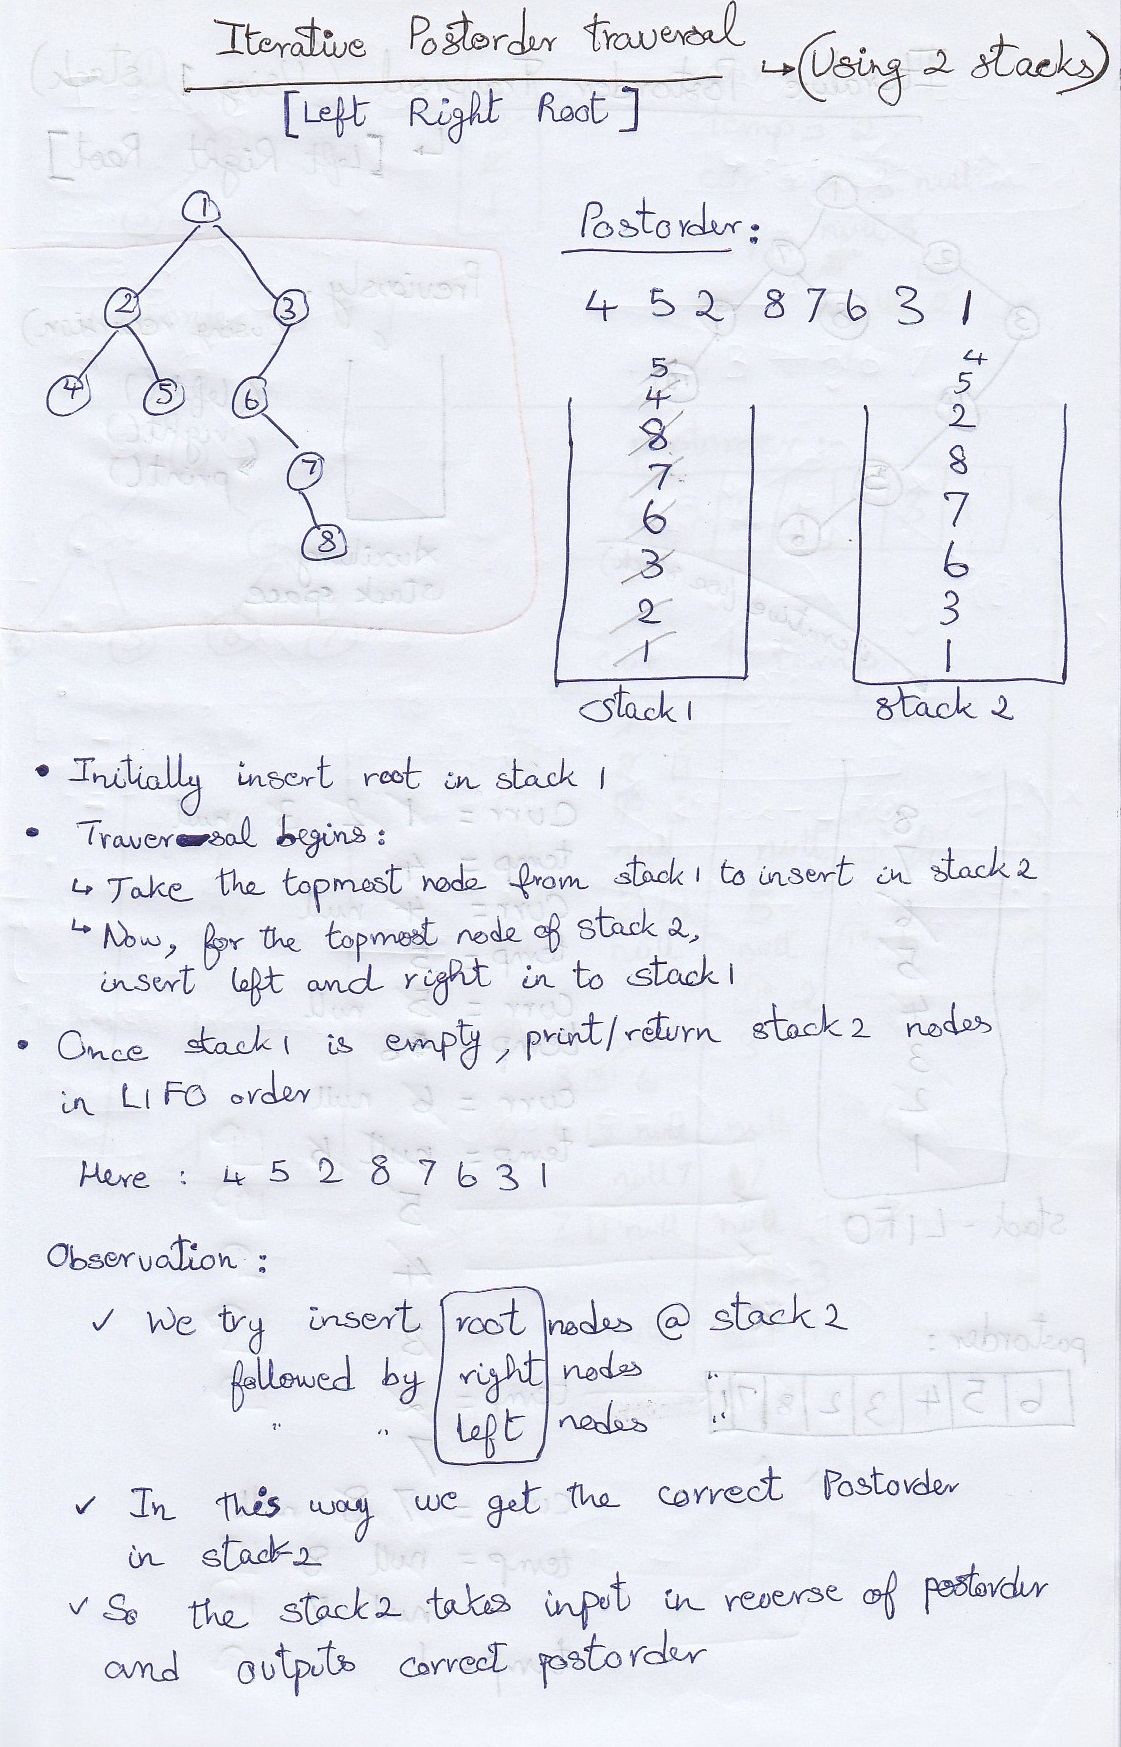 Iterative Postorder traversal
↳ (Using 2 stacks)
[Left Right Root]
1
2 3
4 5 6
7
8
Postorder:
4 5 2 8 7 6 3 1
5
4
8
7
6
3
2
1
stack 1
4
5
2
8
7
6
3
1
stack 2
• Initially insert root in stack 1
• Traversal begins:
↳ Take the topmost node from stack 1 to insert in stack 2
↳ Now, for the topmost node of stack 2,
insert left and right in to stack 1
• Once stack 1 is empty, print/return stack 2 nodes
in LIFO order
Here : 4 5 2 8 7 6 3 1
Observation :
✓ We try insert root nodes @ stack 2
followed by right nodes "
" " left nodes "
✓ In this way we get the correct Postorder
in stack 2
✓ So the stack 2 takes input in reverse of postorder
and outputs correct postorder